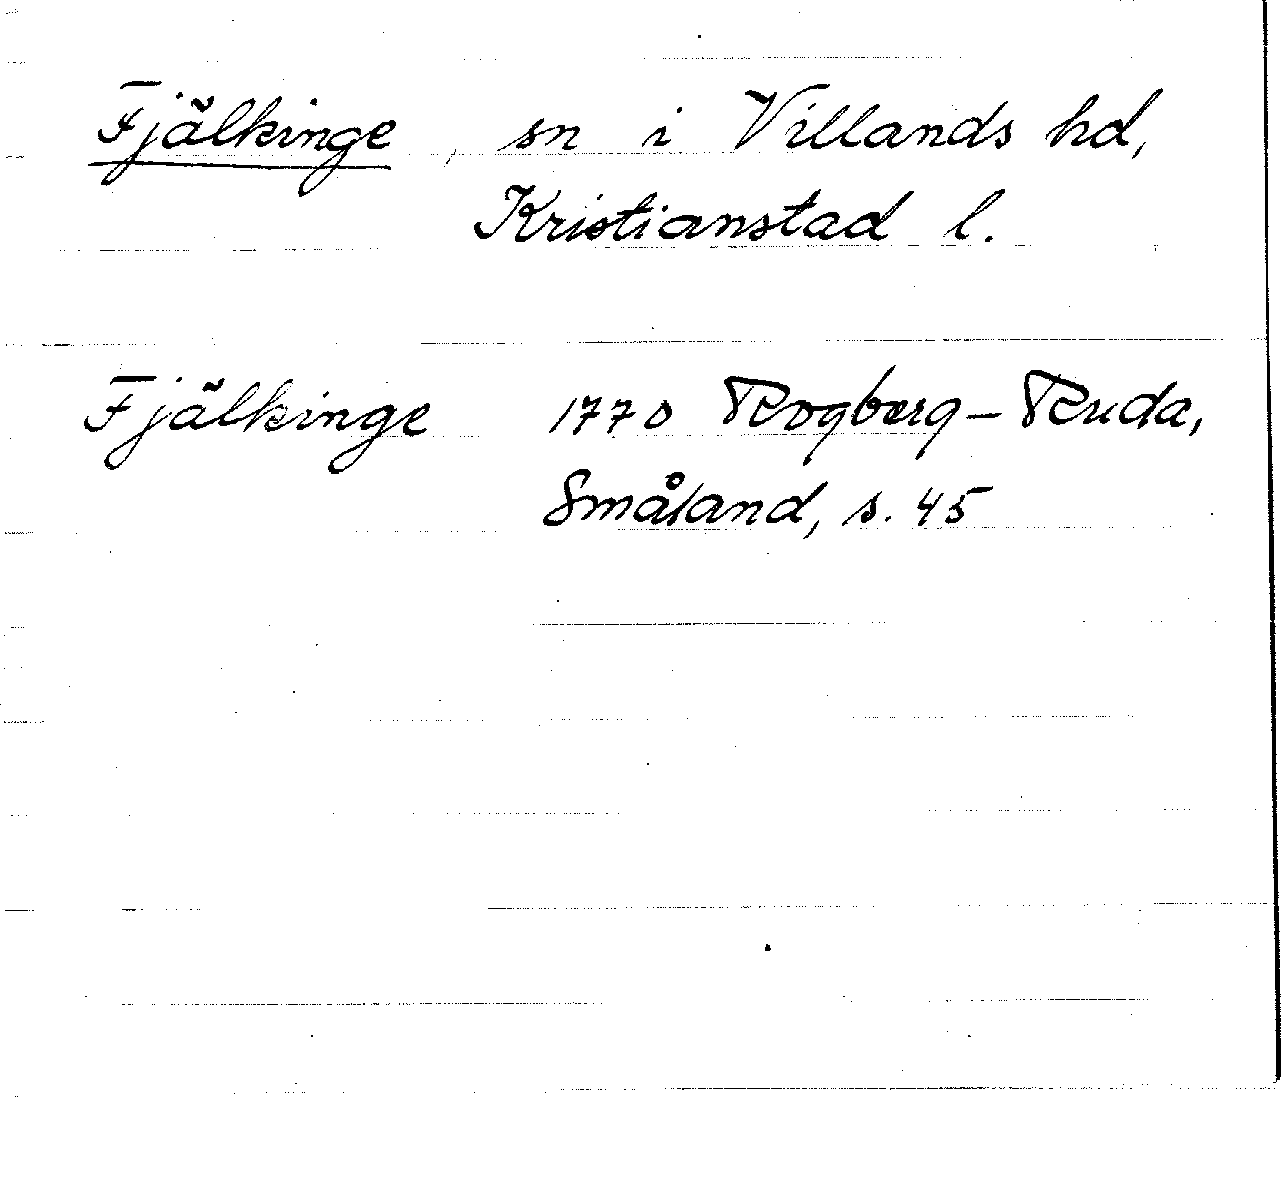 Fjälkinge, sn i Villands hd,
Kristianstad l.
Fjälkinge 1770 Rogberg-Ruda,
Småland, s. 45